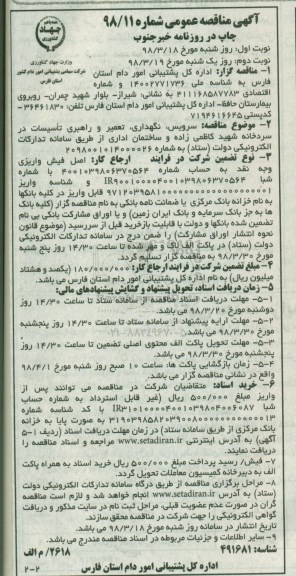 آگهی مناقصه عمومی شماره ۹۸/۱۱
چاپ در روزنامه خبر جنوب
نوبت اول: روز شنبه مورخ ۹۸/۳/۱۸
نوبت دوم: روز یک شنبه مورخ ۹۸/۳/۱۹
وزارت جهاد کشاورزی
شرکت سهامی پشتیبانی امور دام کشور
استان فارس
۱- مناقصه گزار: اداره کل پشتیبانی امور دام استان
فارس به شناسه ملی ۱۴۰۰۲۷۷۱۷۳۶ و شماره
اقتصادی ۴۱۱۱۶۸۵۸۷۷۸۳ به نشانی: شیراز- بلوار شهید چمران- روبروی
بیمارستان حافظ- اداره کل پشتیبانی امور دام استان فارس تلفن: ۳۶۴۶۱۸۳۰-
کدپستی ۷۱۹۴۶۱۶۶۴۵
۲- موضوع مناقصه: سرویس، نگهداری، تعمیر و راهبری تأسیسات در
سردخانه شهید کاظمی زاده و ساختمان اداری از طریق سامانه تدارکات
الکترونیکی دولت (ستاد) به شماره ۲۰۹۸۰۰۱۰۱۴۰۰۰۰۲۶
۳- نوع تضمین شرکت در فرایند ارجاع کار: اصل فیش واریزی
وجه نقد به حساب شماره ۴۰۰۱۰۳۹۸۰۶۳۷۰۵۶۴ با شماره
شبا و شناسه واریز
قابل واریز در کلیه بانکها
به نام خزانه بانک مرکزی یا ضمانت نامه بانکی به نام مناقصه گزار (کلیه بانک
ها به جز بانک سرمایه و بانک ایران زمین) و یا اوراق مشارکت بانکی بی نام
تضمین شده بانکها و دولت با قابلیت بازخرید قبل از سررسید (موضوع قانون
نحوه انتشار اوراق مشارکت) را ضمن درج در سامانه تدارکات الکترونیکی
دولت (ستاد) در پاکت الف لاک و مهر شده تا ساعت ۱۴/۳۰ روز پنج شنبه
مورخ ۹۸/۳/۳۰ به مناقصه گزار تسلیم گردد.
۴- مبلغ تضمین شرکت در فرایند ارجاع کار: ۱۸۰/۰۰۰/۰۰۰ (یکصد و هشتاد
میلیون ریال) به نام اداره کل پشتیبانی امور دام استان فارس می باشد.
۵- زمان دریافت اسناد، تحویل پیشنهاد و گشایش پیشنهادهای مالی:
۱-۵- مهلت دریافت اسناد مناقصه از سامانه ستاد تا ساعت ۱۴/۳۰ روز
دوشنبه مورخ ۹۸/۳/۲۰ می باشد.
۲-۵- مهلت ارایه پیشنهاد از سامانه ستاد تا ساعت ۱۴/۳۰ روز پنجشنبه
مورخ ۹۸/۳/۳۰ می باشد.
۳-۵- مهلت تحویل پاکت الف محتوی اصلی تضمین تا ساعت ۱۴/۳۰ روز
پنجشنبه مورخ ۹۸/۳/۳۰ می باشد.
۴-۵- زمان بازگشایی پاکت ها: ساعت ۱۰ صبح روز شنبه مورخ ۹۸/۴/۱
واقع در نشانی مناقصه گزار می باشد.
۶- خرید اسناد: متقاضیان شرکت در مناقصه می توانند پس از
واریز مبلغ ۵۰۰/۰۰۰ ریال (غیر قابل استرداد به شماره حساب
شبا با کد شناسه شماره
به صورت پایا به خزانه
بانک مرکزی از طریق سامانه ستاد در زمان مهلت دریافت اسناد (ردیف ۱-۵
آگهی) به آدرس اینترنتی www.setadiran.ir مراجعه و اسناد مناقصه را
دریافت نمایند.
۷- اصل فیش/ رسید پرداخت مبلغ ۵۰۰/۰۰۰ ریال خرید اسناد به همراه پاکت
الف به دبیرخانه کمیسیون معاملات تحویل گردد.
۸- مراحل برگزاری مناقصه از طریق درگاه سامانه تدارکات الکترونیکی دولت
(ستاد) به آدرس www.setadiran.ir انجام خواهد شد و لازم است مناقصه
گران در صورت عدم عضویت قبلی، مراحل ثبت نام در سایت مذکور و دریافت
گواهی الکترونیکی را جهت شرکت در مناقصه محقق سازند.
تاریخ انتشار در سامانه روز شنبه مورخ ۹۸/۳/۱۸ می باشد.
۹- سایر اطلاعات و جزئیات مربوطه در اسناد مناقصه مندرج می باشد.
شناسه: ۴۹۱۶۸۱ ۲۶۱۸/ م الف
اداره کل پشتیبانی امور دام استان فارس
۲-۲